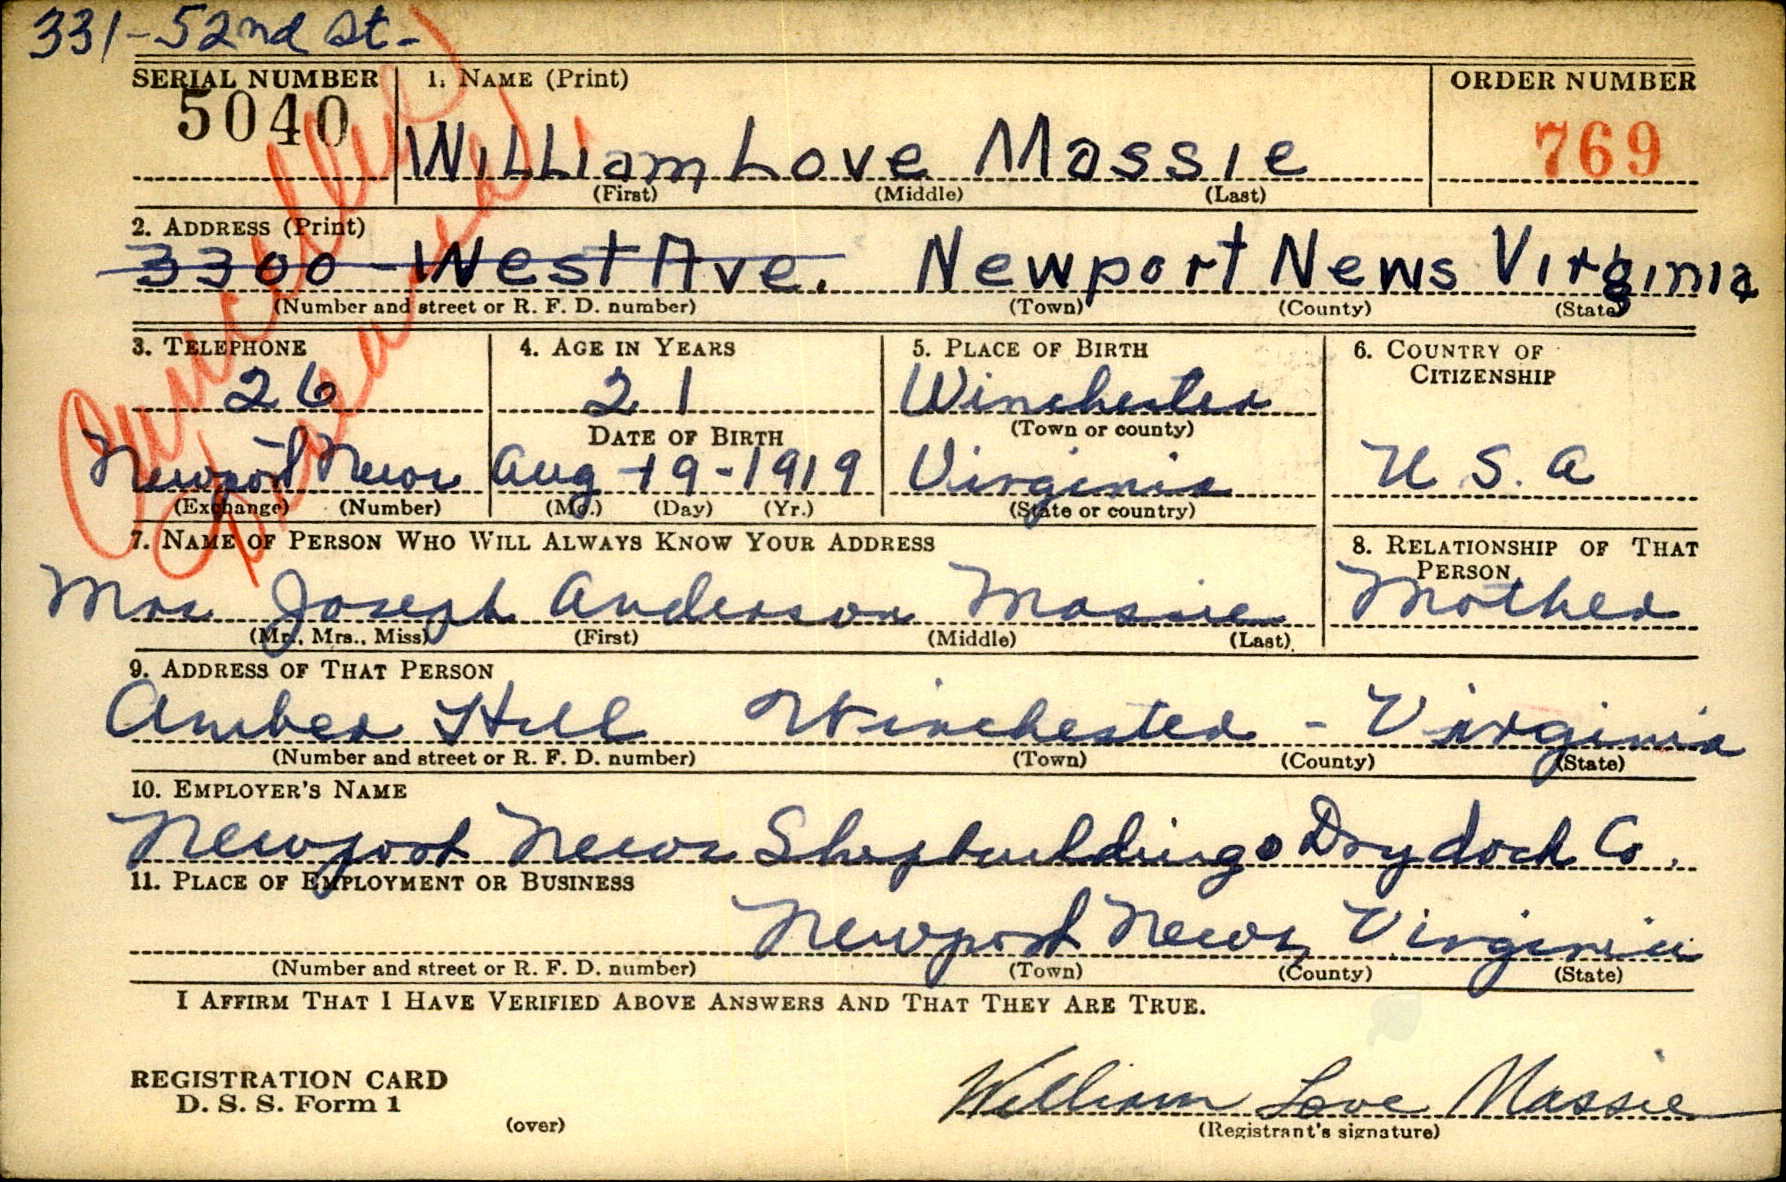 331-52nd St-
SERIAL NUMBER 1. NAME (Print) ORDER NUMBER
5040 William Love Massie 769
(First) (Middle) (Last)
2. ADDRESS (Print)
3300 - West Ave. Newport News Virginia
(Number and street or R. F. D. number) (Town) (County) (State)
3. TELEPHONE 4. AGE IN YEARS 5. PLACE OF BIRTH 6. COUNTRY OF CITIZENSHIP
26 21 Winchester
DATE OF BIRTH (Town or county)
Newport News Aug-19-1919 Virginia U.S.A
(Exchange) (Number) (Mo.) (Day) (Yr.) (State or country)
7. NAME OF PERSON WHO WILL ALWAYS KNOW YOUR ADDRESS 8. RELATIONSHIP OF THAT PERSON
Mrs Joseph Anderson Massie Mother
(Mr., Mrs., Miss) (First) (Middle) (Last)
9. ADDRESS OF THAT PERSON
Amber Hill Winchester - Virginia
(Number and street or R. F. D. number) (Town) (County) (State)
10. EMPLOYER'S NAME
Newport News Shipbuilding & Drydock Co.
11. PLACE OF EMPLOYMENT OR BUSINESS
Newport News, Virginia
(Number and street or R. F. D. number) (Town) (County) (State)
I AFFIRM THAT I HAVE VERIFIED ABOVE ANSWERS AND THAT THEY ARE TRUE.
REGISTRATION CARD
D. S. S. Form 1
(over)
William Love Massie
(Registrant's signature)
Cancelled